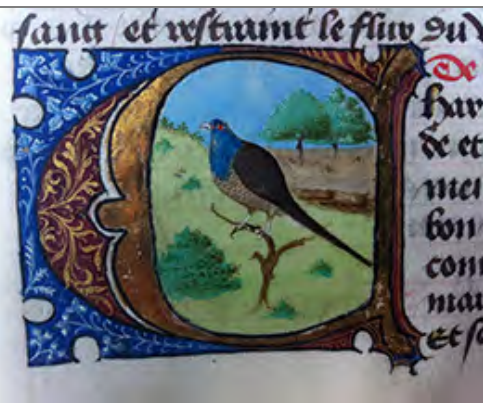 sanct et restraint le flux du
De
har
de et
mei
bon
com
mai
Et se